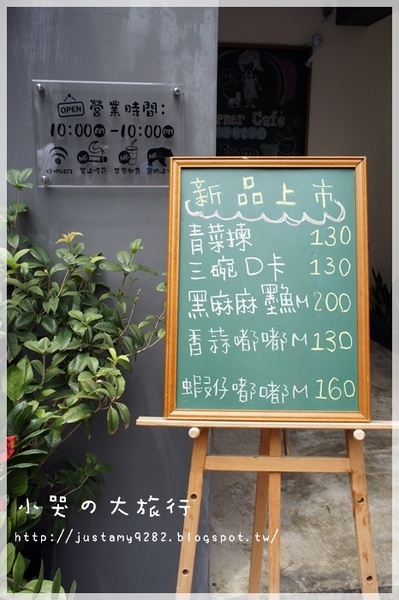 OPEN 營業時間:
10:00AM-10:00PM
Corner Café
新品上市
青菜揀 130
三碗D卡 130
黑麻麻墨魚M 200
香蒜嘟嘟M 130
蝦仔嘟嘟M 160
小哭の大旅行
http://justamy9282.blogspot.tw/